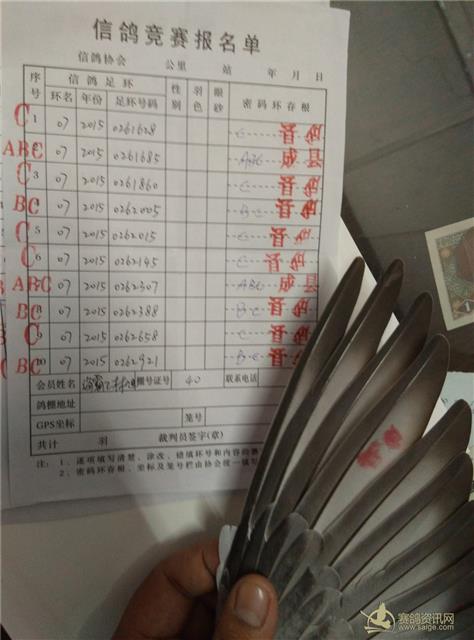 信鸽竞赛报名单
信鸽协会 公里 站 年 月 日
序号 信鸽足环 性别 羽色 眼砂 密码环存根
环名 年份 足环号码
C 1 07 2015 0261628 C
ABC 07 2015 0261685 ABC 成县
C 3 07 2015 0261860 C
BC 07 2015 0262005 B C
C 5 07 2015 0262015 C
C 6 07 2015 0262145 C
ABC 07 2015 0262307 ABC 成县
BC 8 07 2015 0262388 B C
C 9 07 2015 0262658 C
BC 10 07 2015 0262921 B C
会员姓名 棚号证号 40 联系电话
鸽棚地址
GPS坐标 笼号
共计 羽 裁判员签字(章)
注: 1、逐项填写清楚、涂改、错填环号和内容的
2、密码环存根、坐标及笼号栏由协会统一填写
赛鸽资讯网
www.saige.com